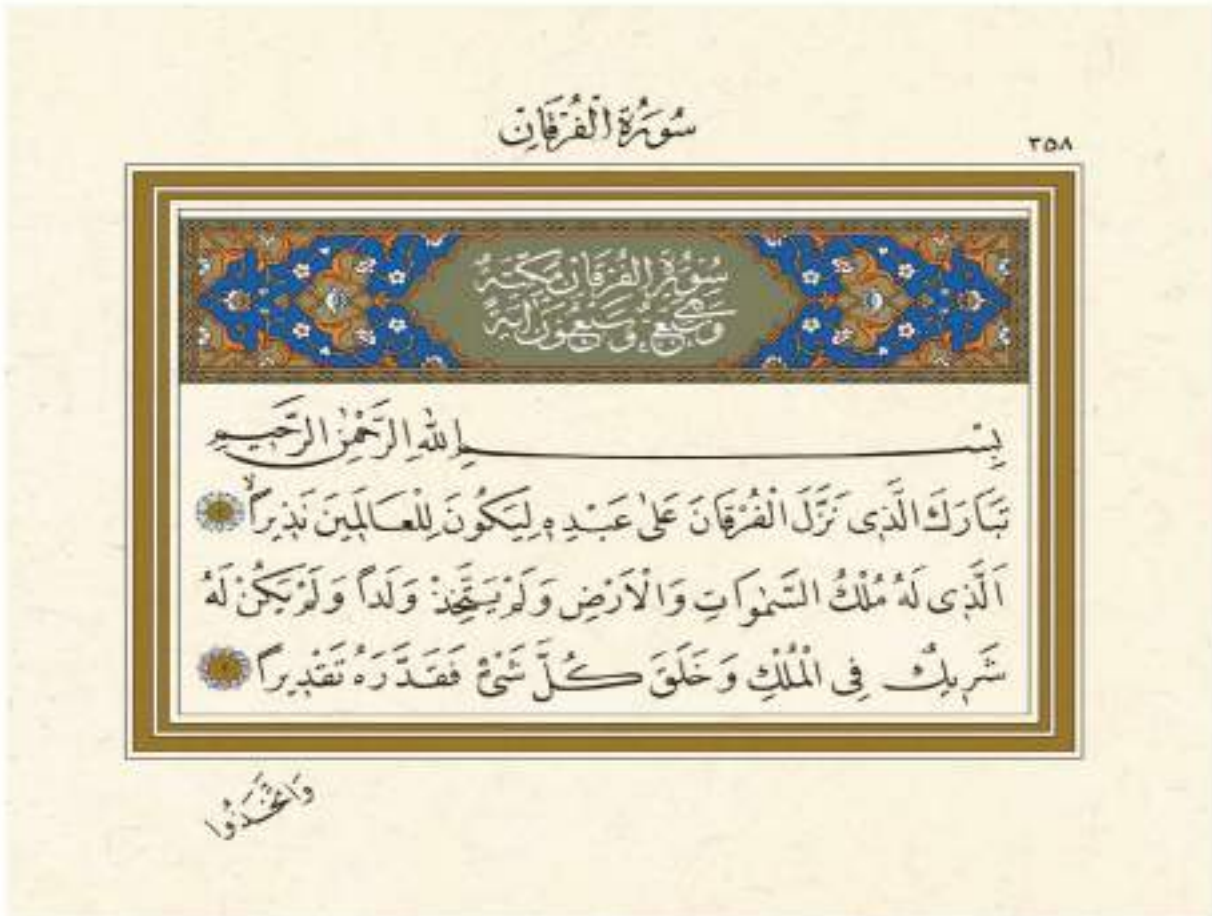 سُورَةُ الْفُرْقَانِ
٣٥٨
سُورَةُ الْفُرْقَانِ مَكِّيَّةٌ
وَهِيَ سَبْعٌ وَسَبْعُونَ اٰيَةً
بِسْــــــــمِ اللّٰهِ الرَّحْمٰنِ الرَّحٖيمِ
تَبَارَكَ الَّذٖى نَزَّلَ الْفُرْقَانَ عَلٰى عَبْدِهٖ لِيَكُونَ لِلْعَالَمٖينَ نَذٖيراًۙ
اَلَّذٖى لَهُ مُلْكُ السَّمٰوَاتِ وَالْاَرْضِ وَلَمْ يَتَّخِذْ وَلَداً وَلَمْ يَكُنْ لَهُ
شَرٖيكٌ فِى الْمُلْكِ وَخَلَقَ كُلَّ شَىْءٍ فَقَدَّرَهُ تَقْدٖيراً
وَاتَّخَذُوا